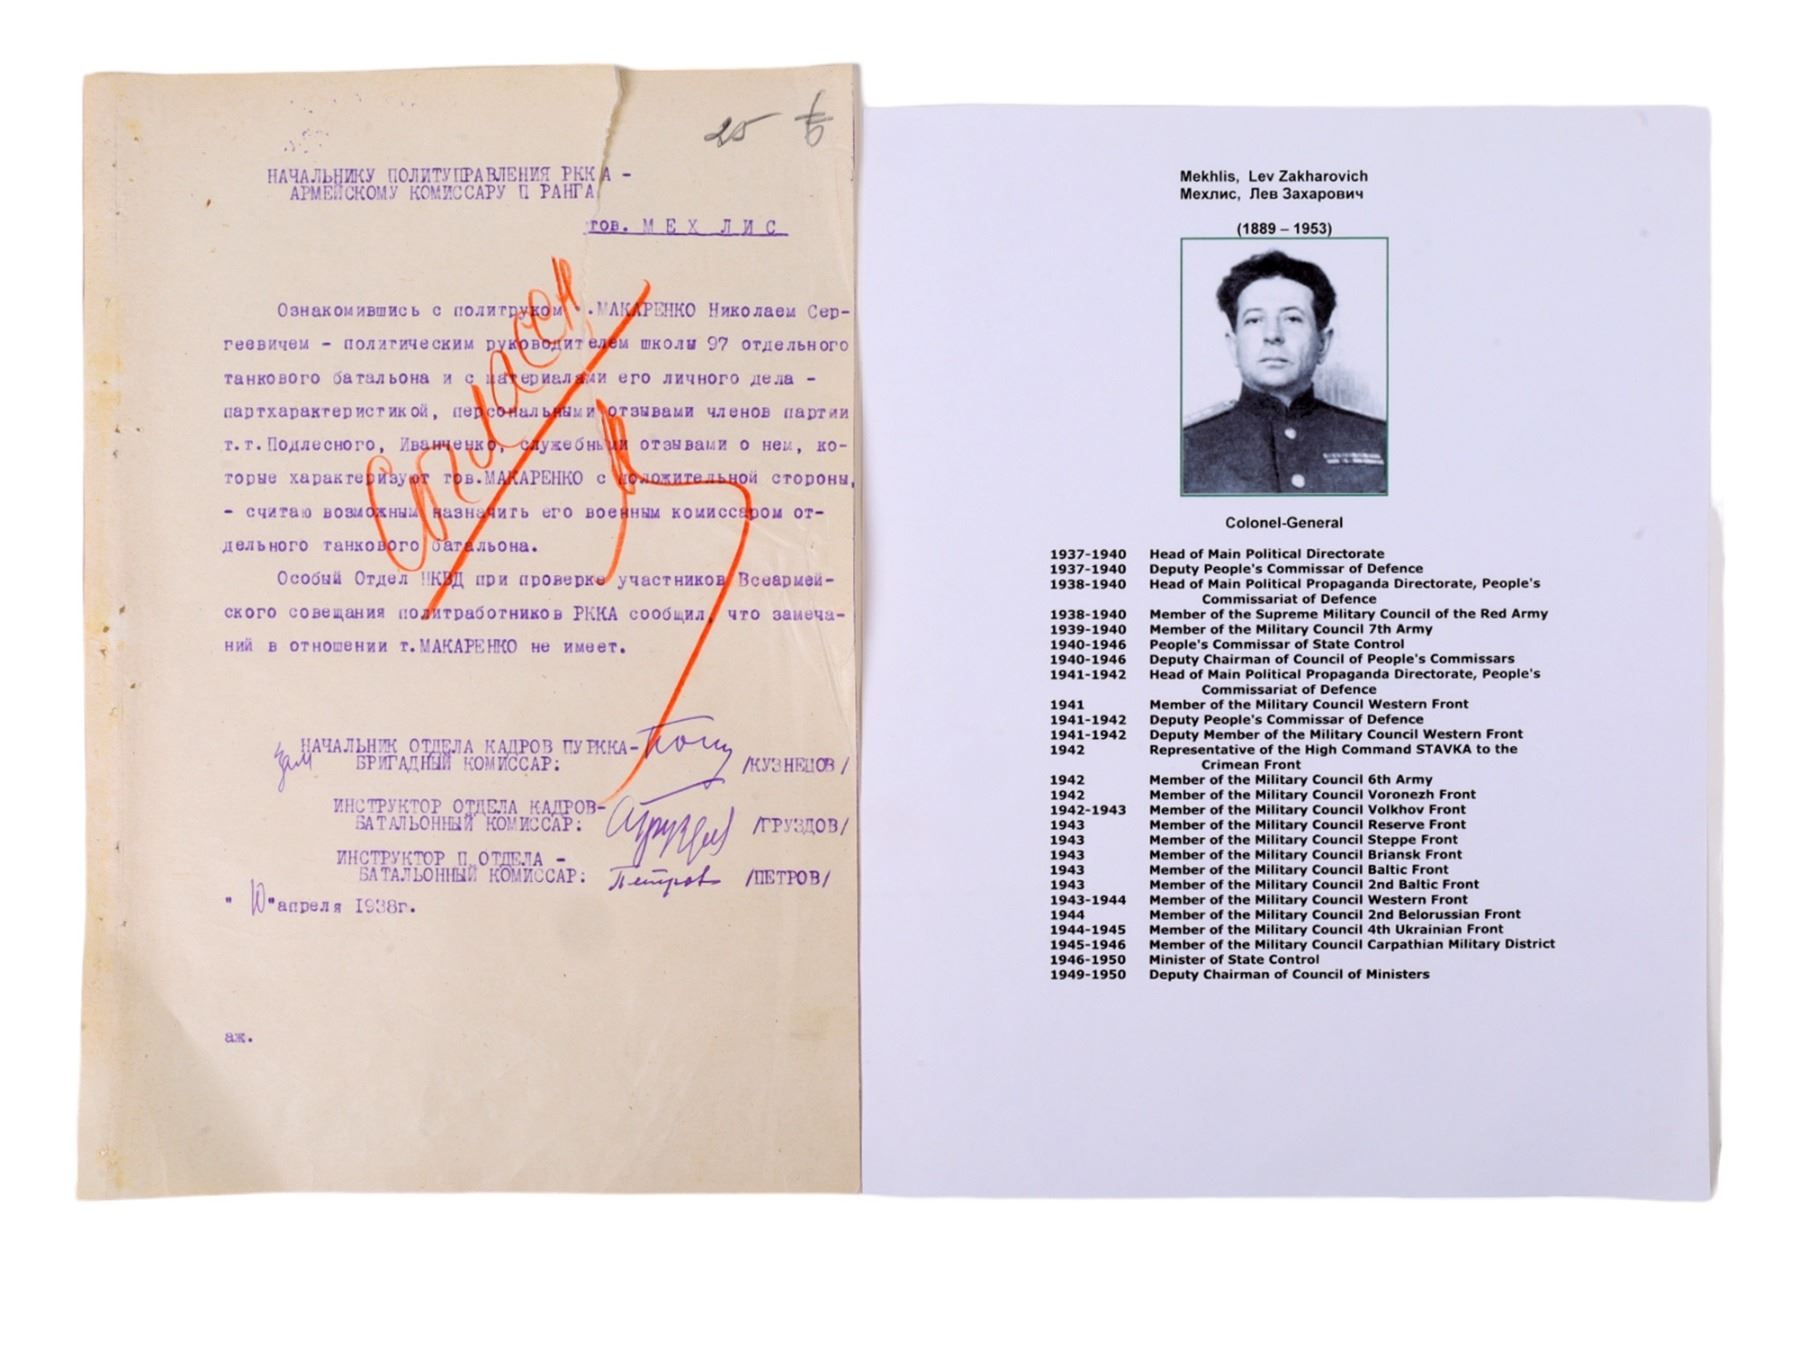 25
НАЧАЛЬНИКУ ПОЛИТУПРАВЛЕНИЯ РККА -
АРМЕЙСКОМУ КОМИССАРУ П РАНГА
тов. М Е Х Л И С
Согласен
Ознакомившись с политруком т.МАКАРЕНКО Николаем Сер-
геевичем - политическим руководителем школы 97 отдельного
танкового батальона и с материалами его личного дела -
партхарактеристикой, персональными отзывами членов партии
т.т.Подлесного, Иванченко, служебными отзывами о нем, ко-
торые характеризуют тов.МАКАРЕНКО с положительной стороны,
- считаю возможным назначить его военным комиссаром от-
дельного танкового батальона.
Особый Отдел НКВД при проверке участников Всеармей-
ского совещания политработников РККА сообщил, что замеча-
ний в отношении т.МАКАРЕНКО не имеет.
зам НАЧАЛЬНИК ОТДЕЛА КАДРОВ ПУРККА-
БРИГАДНЫЙ КОМИССАР: /КУЗНЕЦОВ/
ИНСТРУКТОР ОТДЕЛА КАДРОВ-
БАТАЛЬОННЫЙ КОМИССАР: Груздов /ГРУЗДОВ/
ИНСТРУКТОР П ОТДЕЛА -
БАТАЛЬОННЫЙ КОМИССАР: Петров /ПЕТРОВ/
"10" апреля 1938г.
аж.
Mekhlis, Lev Zakharovich
Мехлис, Лев Захарович
(1889 – 1953)
Colonel-General
1937-1940 Head of Main Political Directorate
1937-1940 Deputy People's Commissar of Defence
1938-1940 Head of Main Political Propaganda Directorate, People's
Commissariat of Defence
1938-1940 Member of the Supreme Military Council of the Red Army
1939-1940 Member of the Military Council 7th Army
1940-1946 People's Commissar of State Control
1940-1946 Deputy Chairman of Council of People's Commissars
1941-1942 Head of Main Political Propaganda Directorate, People's
Commissariat of Defence
1941 Member of the Military Council Western Front
1941-1942 Deputy People's Commissar of Defence
1941-1942 Deputy Member of the Military Council Western Front
1942 Representative of the High Command STAVKA to the
Crimean Front
1942 Member of the Military Council 6th Army
1942 Member of the Military Council Voronezh Front
1942-1943 Member of the Military Council Volkhov Front
1943 Member of the Military Council Reserve Front
1943 Member of the Military Council Steppe Front
1943 Member of the Military Council Briansk Front
1943 Member of the Military Council Baltic Front
1943 Member of the Military Council 2nd Baltic Front
1943-1944 Member of the Military Council Western Front
1944 Member of the Military Council 2nd Belorussian Front
1944-1945 Member of the Military Council 4th Ukrainian Front
1945-1946 Member of the Military Council Carpathian Military District
1946-1950 Minister of State Control
1949-1950 Deputy Chairman of Council of Ministers